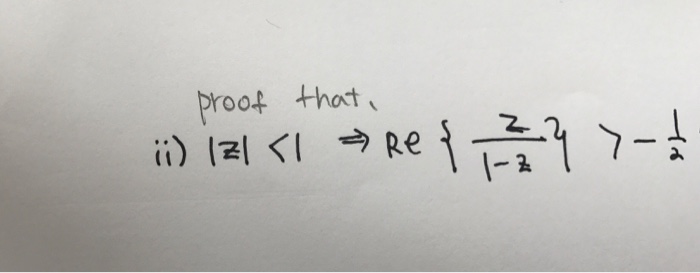 proof that.
ii) |z| < 1 ⇒ Re { z / 1-z } > - 1/2